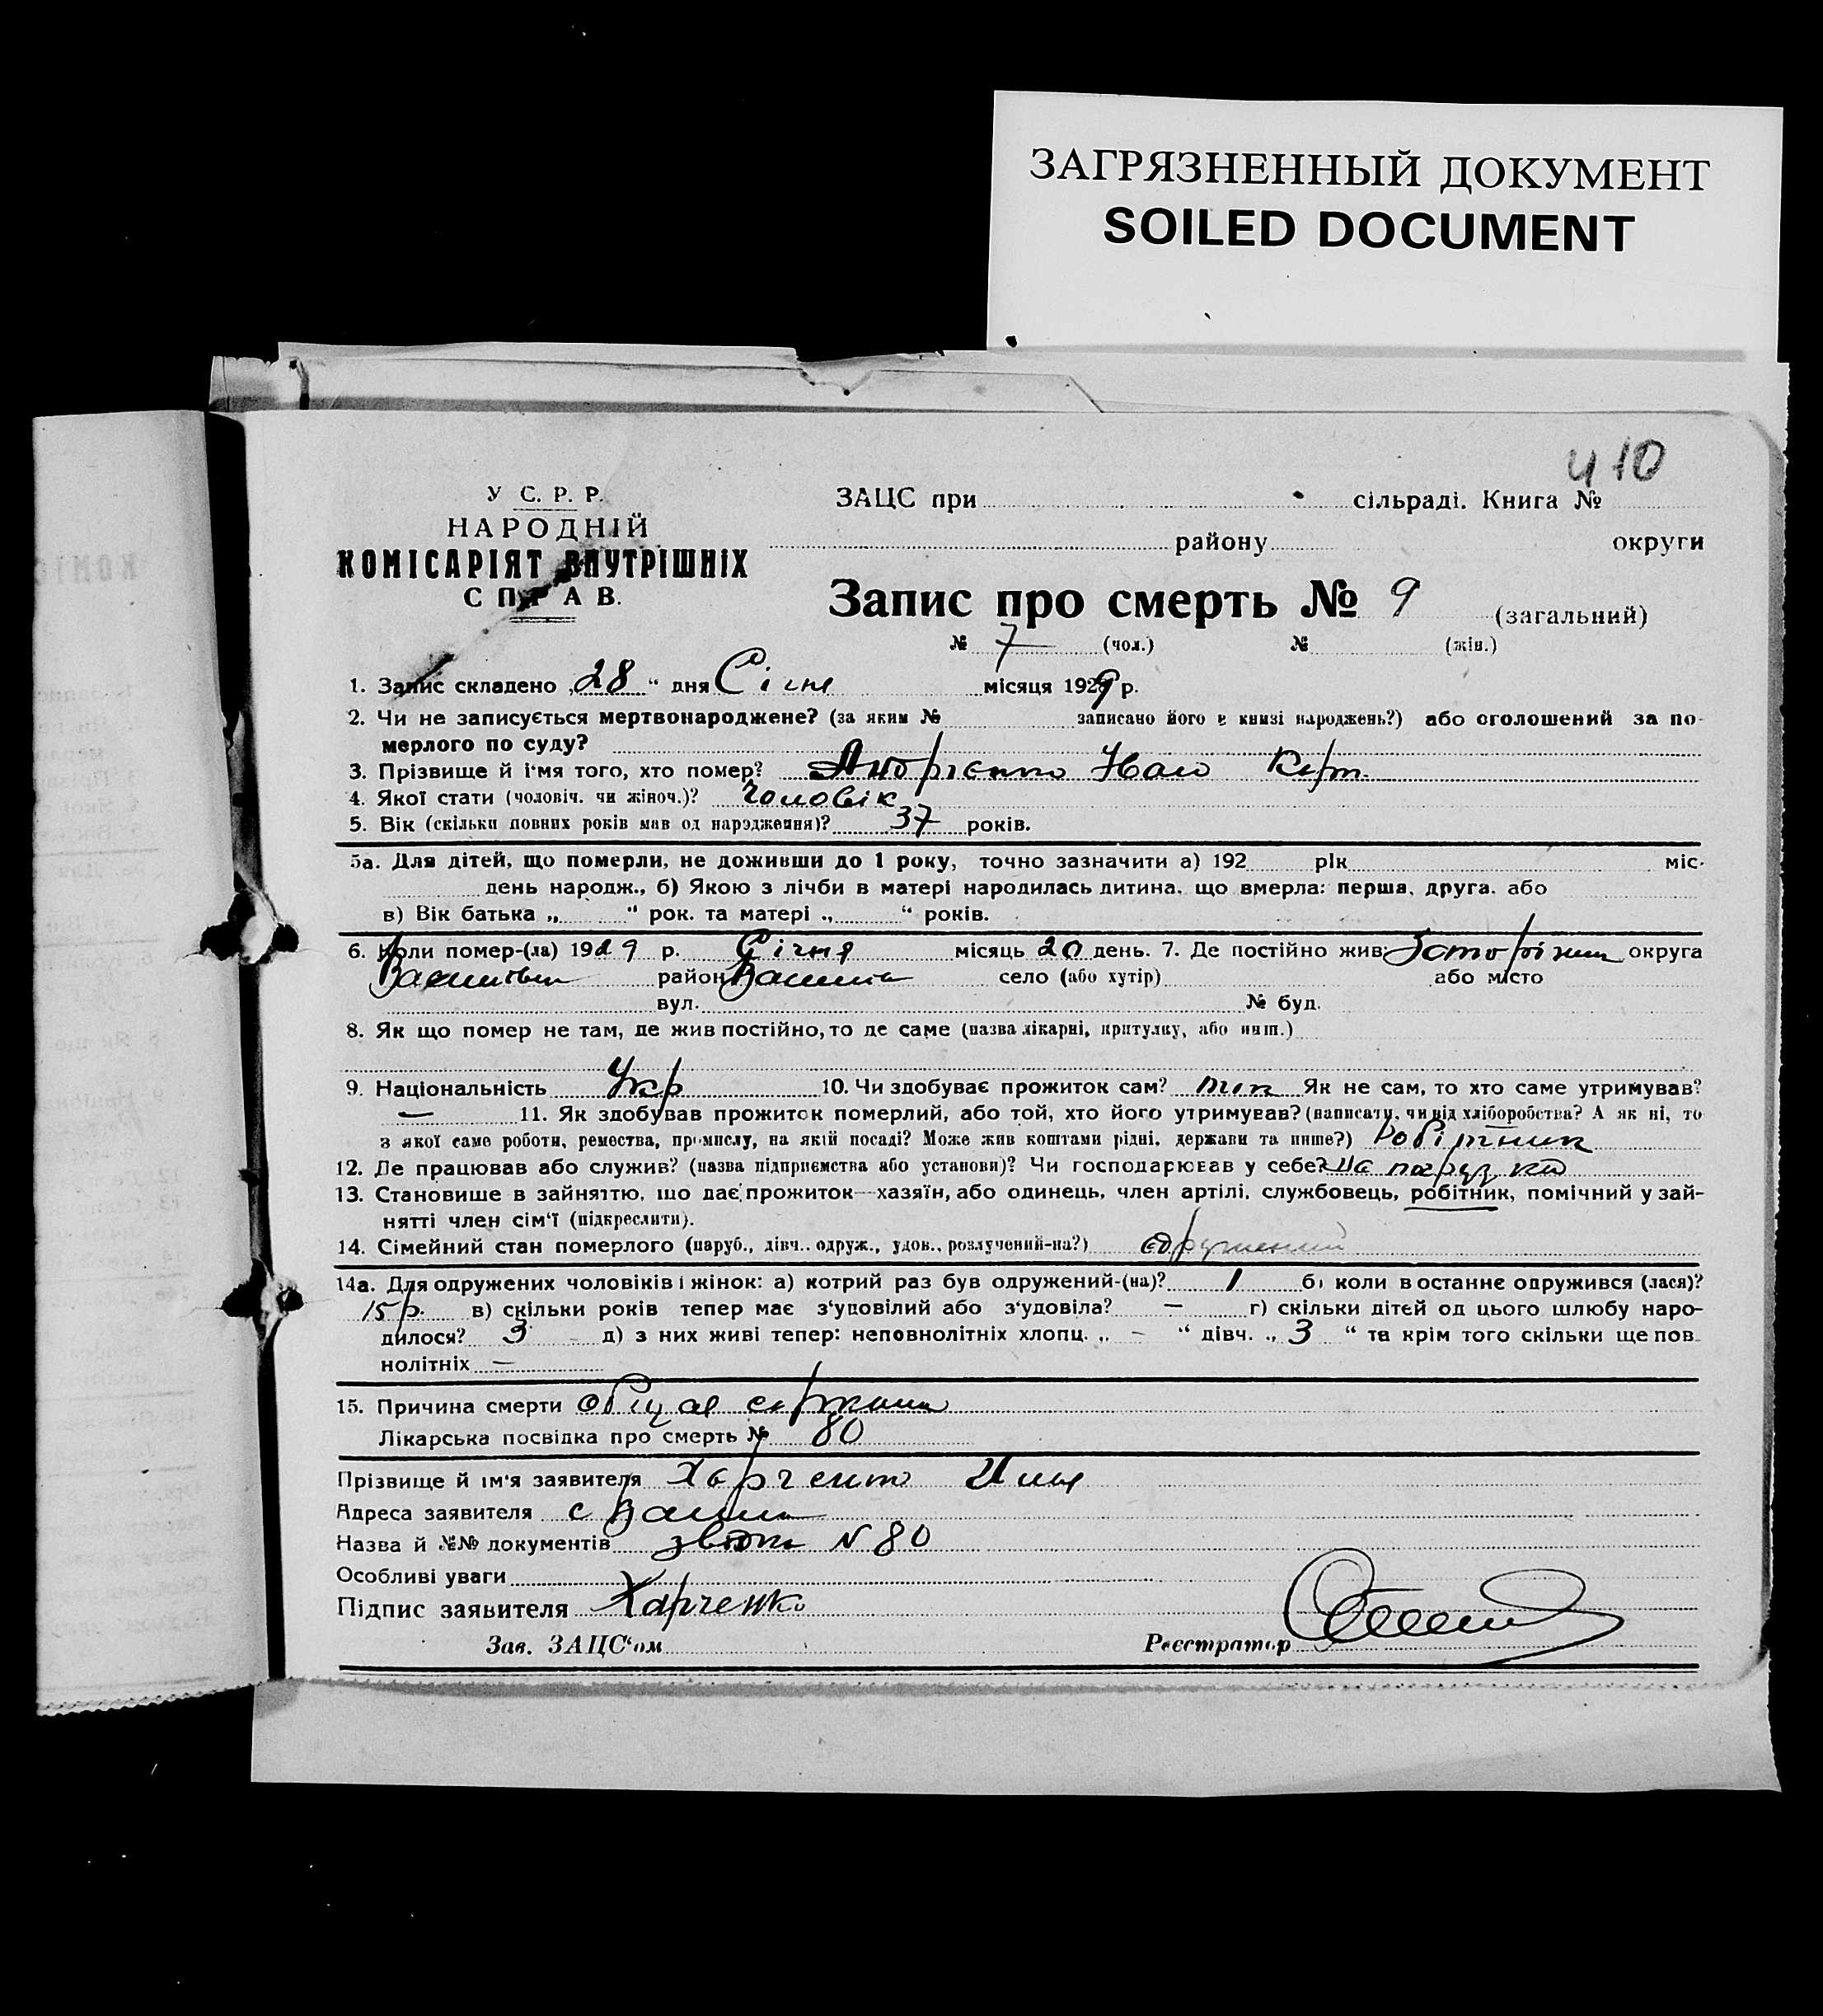 ЗАГРЯЗНЕННЫЙ ДОКУМЕНТ
SOILED DOCUMENT
410
У С. Р. Р.
НАРОДНІЙ
КОМІСАРІЯТ ВНУТРІШНІХ
СПРАВ.
ЗАЦС при сільраді. Книга №
району округи
Запис про смерть № 9 (загальний)
№ 7 (чол.) № (жін.)
1. Запис складено „28“ дня Січня місяця 1929 р.
2. Чи не записується мертвонароджене? (за яким № записано його в книзі народжень?) або оголошений за по-
мерлого по суду?
3. Прізвище й і'мя того, хто помер? Андрієнко Іван
4. Якої стати (чоловіч. чи жіноч.)? Чоловік
5. Вік (скільки повних років мав од народження)? 37 років.
5а. Для дітей, що померли, не доживши до 1 року, точно зазначити а) 192 рік міс.
день народж., б) Якою з лічби в матері народилась дитина, що вмерла: перша, друга, або
в) Вік батька „ “ рок. та матері „ “ років.
6. Коли помер-(ла) 1929 р. Січня місяць 20 день. 7. Де постійно жив: округа
район село (або хутір) або місто
вул. № буд.
8. Як що помер не там, де жив постійно, то де саме (назва лікарні, притулку, або инш.)
9. Національність Укр 10. Чи здобуває прожиток сам? так Як не сам, то хто саме утримував?
— 11. Як здобував прожиток померлий, або той, хто його утримував? (написати, чи від хліборобства? А як ні, то
з якої саме роботи, ремества, промислу, на якій посаді? Може жив коштами рідні, держави та инше?) Робітник
12. Де працював або служив? (назва підприємства або установи)? Чи господарював у себе? на
13. Становище в зайняттю, що дає прожиток—хазяїн, або одинець, член артілі, службовець, робітник, помічний у зай-
нятті член сім'ї (підкреслити).
14. Сімейний стан померлого (паруб., дівч., одруж., удов., розлучений-на?) одружений
14а. Для одружених чоловіків і жінок: а) котрий раз був одружений-(на)? 1 б) коли востаннє одружився (лася)?
15 р. в) скільки років тепер має з'удовілий або з'удовіла? — г) скільки дітей од цього шлюбу наро-
дилося? 3 д) з них живі тепер: неповнолітніх хлопц. „ — “ дівч. „ 3 “ та крім того скільки ще пов
нолітніх —
15. Причина смерти
Лікарська посвідка про смерть № 80
Прізвище й ім'я заявителя Харченко
Адреса заявителя с
Назва й №№ документів N 80
Особливі уваги
Підпис заявителя Харченко
Зав. ЗАЦС'ом Реєстратор